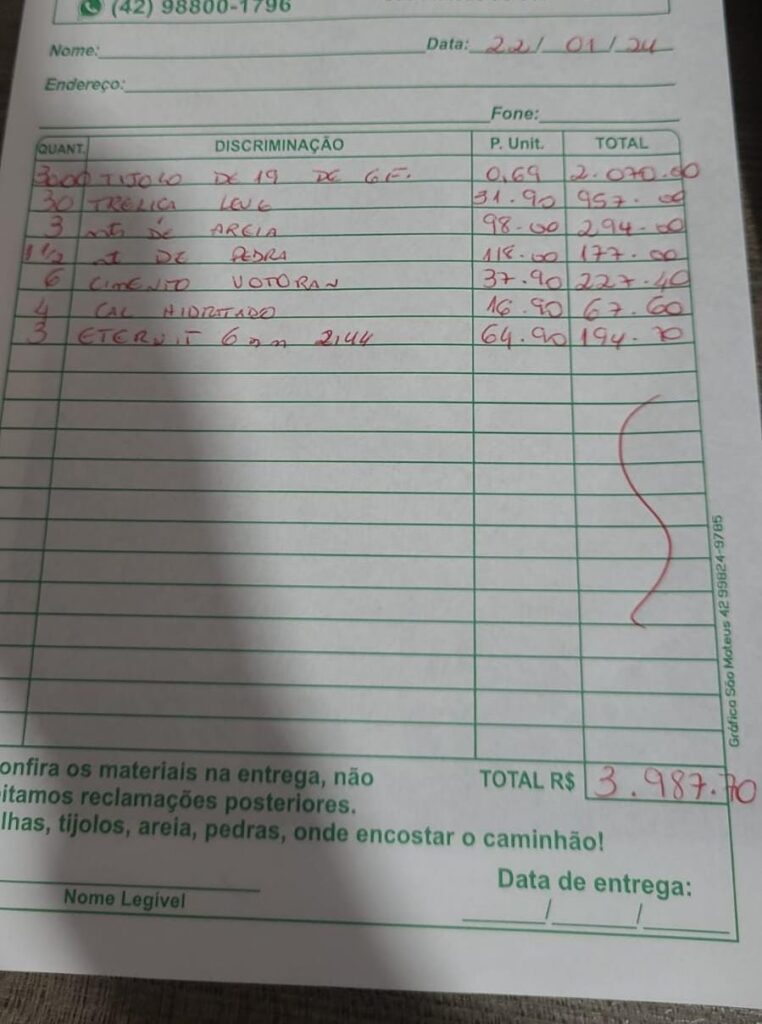 (42) 98800-1796
Nome: Data: 22/01/24
Endereço:
Fone:
QUANT. DISCRIMINAÇÃO P. Unit. TOTAL
3000 TIJOLO DE 19 DE 6F. 0,69 2.070.00
30 TRELIÇA LEVE 31.90 957.00
3 mts DE AREIA 98.00 294.00
1 1/2 mt DE PEDRA 118.00 177.00
6 CIMENTO VOTORAN 37.90 227.40
4 CAL HIDRITADO 16.90 67.60
3 ETERNIT 6mm 2,44 64.90 194.70
Gráfica São Mateus 42 99824-9785
onfira os materiais na entrega, não TOTAL R$ 3.987.70
itamos reclamações posteriores.
lhas, tijolos, areia, pedras, onde encostar o caminhão!
Data de entrega:
Nome Legível